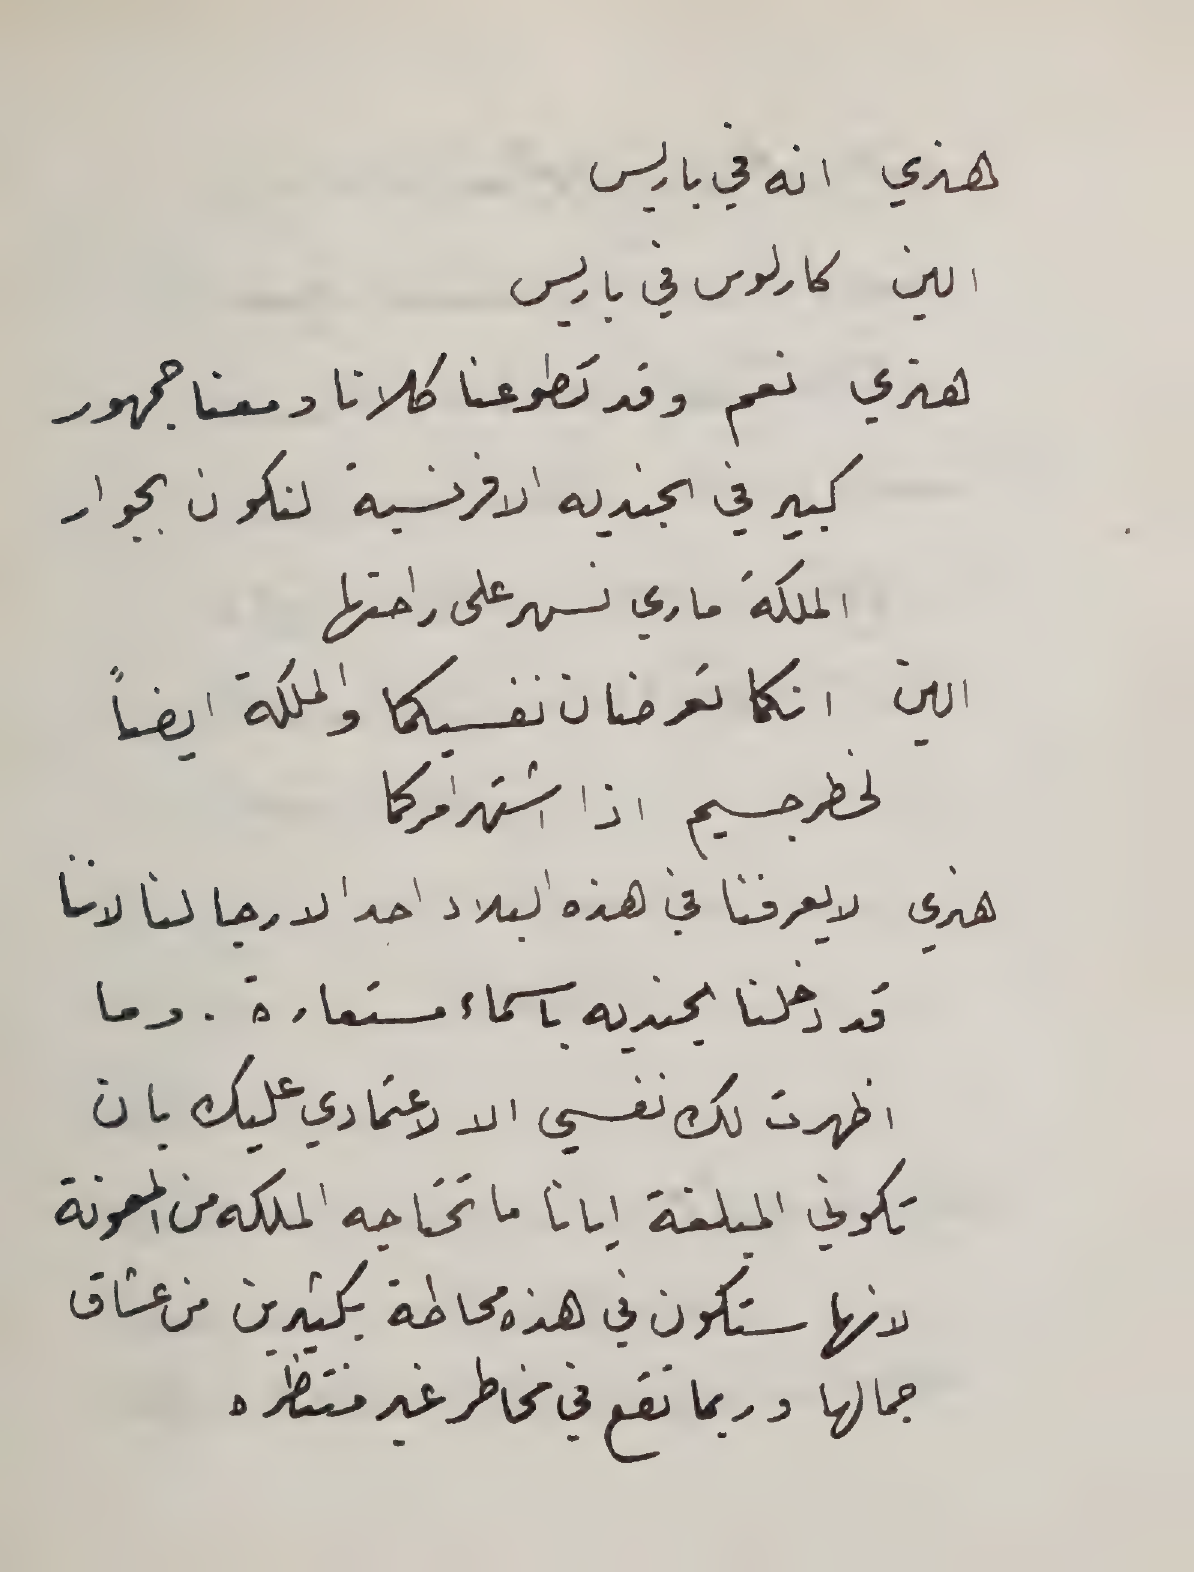 هنري انه في باريس
الين كارلوس في باريس
هنري نعم وقد تطوعنا كلانا ومعنا جمهور
كبير في الجنديه الافرنسية لنكون بجوار
الملكة ماري نسهر على راحتها
الين انكما تعرضان نفسيكما والملكة ايضاً
لخطر جسيم اذا اشتهر امركما
هنري لا يعرفنا في هذه البلاد احد الا رجالنا لاننا
قد دخلنا الجنديه باسماء مستعارة . وما
اظهرت لك نفسي الا لاعتمادي عليك بان
تكوني المبلغة ايانا ما تحتاجه الملكه من المعونة
لانها ستكون في هذه محاطة بكثيرين من عشاق
جمالها وربما تقع في مخاطر غير منتظره